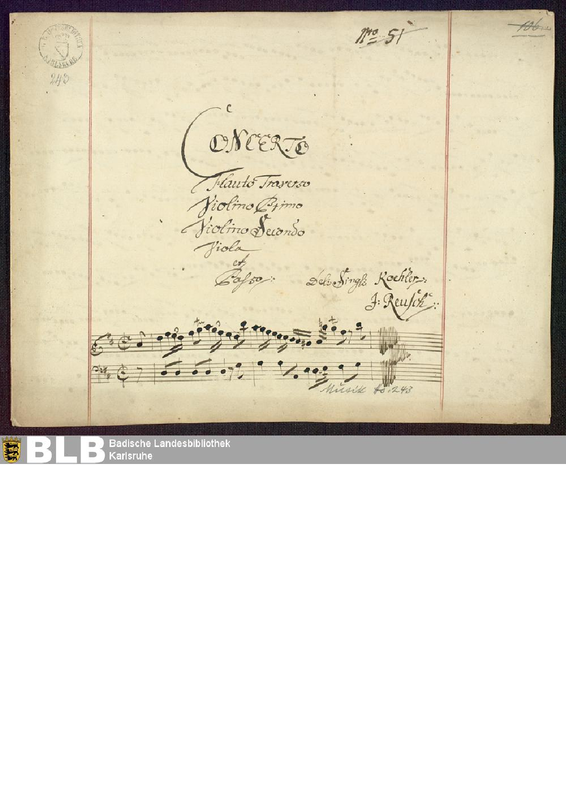 Nro 51
106
243
CONCERTO
Flauto Traverso
Violino Primo
Violino Secondo
Viola
et
Basso:
Del: Sing: Koehler.
J: Reusch:
Musik Hs. 243
BLB
Badische Landesbibliothek
Karlsruhe